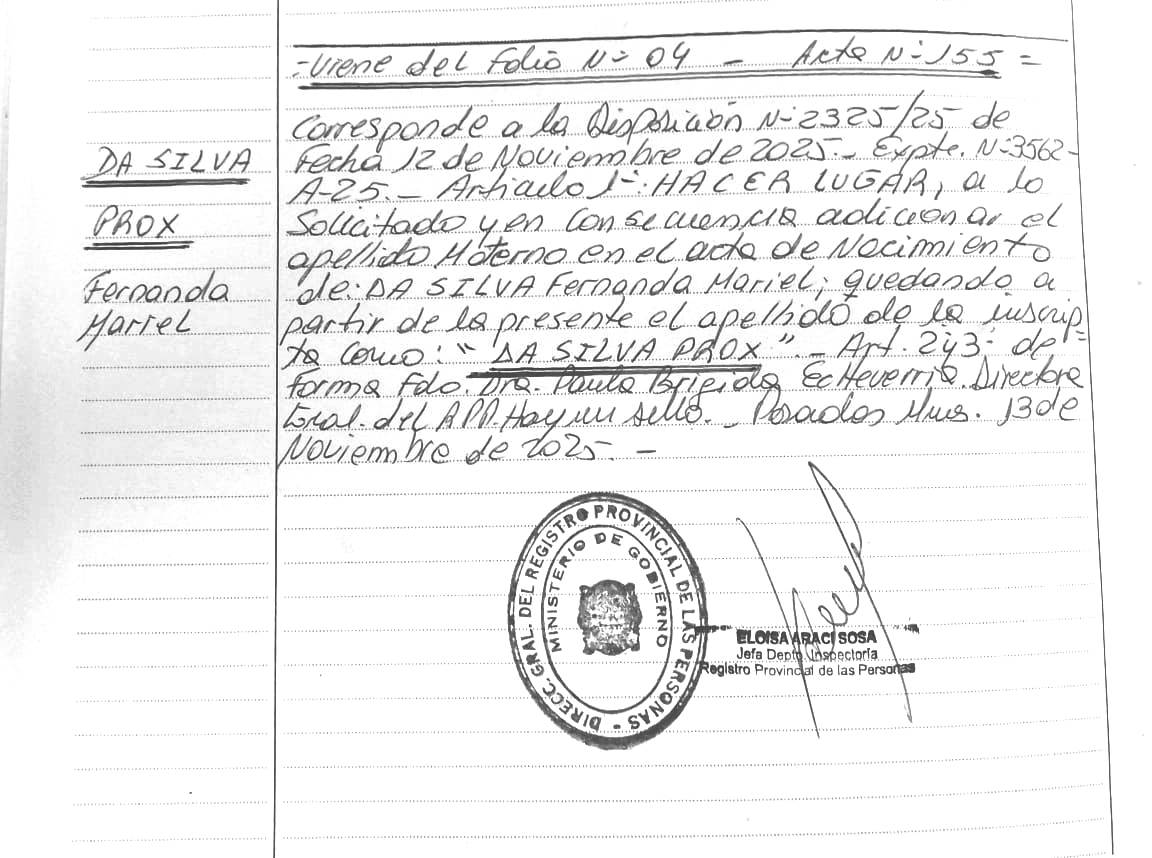 =Viene del Folio Nº 04 - Acta Nº 155=
DA SILVA
PROX
Fernanda
Mariel
Corresponde a la Disposición Nº 2325/25 de
Fecha 12 de Noviembre de 2025.- Expte. Nº 3562-
A-25.- Artículo 1º: HACER LUGAR, a lo
Solicitado y en consecuencia adicionar el
apellido Materno en el acta de Nacimiento
de: DA SILVA Fernanda Mariel; quedando a
partir de la presente el apellido de la inscrip=
ta como: "DA SILVA PROX".- Art. 2 y 3º de
forma Fdo. Dra. Paula Brigida Echeverria. Directora
Gral. del RPP. Hay un sello.- Posadas Mnes. 13 de
Noviembre de 2025.-
DIRECC. GRAL. DEL REGISTRO PROVINCIAL DE LAS PERSONAS -
MINISTERIO DE GOBIERNO
ELOISA ARACI SOSA
Jefa Depto. Inspectoría
Registro Provincial de las Personas